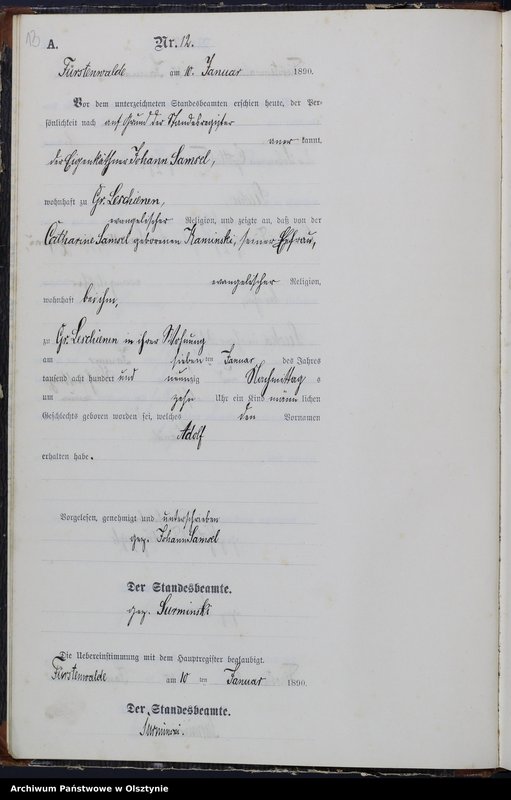 A.
Nr. 12.
Fürstenwalde am 10. Januar 1890.
Vor dem unterzeichneten Standesbeamten erschien heute, der Per-
sönlichkeit nach auf Grund der Standesregister
aner kannt,
der Eigenkäthner Johann Samsel,
wohnhaft zu Gr. Leschienen,
evangelischer Religion, und zeigte an, daß von der
Catharine Samsel geborenen Kaminski, seiner Ehefrau,
evangelischer Religion,
wohnhaft bei ihm,
zu Gr. Leschienen in ihrer Wohnung
am sieben ten Januar des Jahres
tausend acht hundert und neunzig Nachmittag s
um zehn Uhr ein Kind männ lichen
Geschlechts geboren worden sei, welches den Vornamen
Adolf
erhalten habe.
Vorgelesen, genehmigt und unterschrieben
gez. Johann Samsel
Der Standesbeamte.
gez. Surminski
Die Uebereinstimmung mit dem Hauptregister beglaubigt.
Fürstenwalde am 10 ten Januar 1890.
Der Standesbeamte.
Surminski.
Archiwum Państwowe w Olsztynie